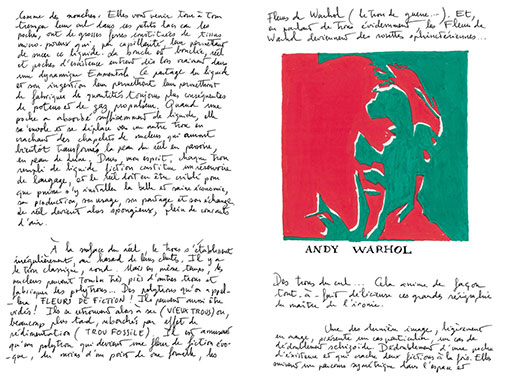 comme des mouches. Elles vont tour à tour
tremper leur dans ces petits lacs ces
poches, ont de grosses fesses constituées de tissus
micro-poreux qui, par capillarité, leur permettent
de sucer ce liquide. La bouche est bouclée, réel
et poches d'existence entrent dès lors vraiment dans
une dynamique. Le partage du liquide
et son ingestion leur permettent leur permettent
de fabriquer des quantités toujours plus conséquentes
de potens et de gaz propulseur. Quand une
poche a absorbé suffisamment de liquide, elle
s'envole et se déplace vers un autre trou en
crachant des chapelets de nucleus qui auront
bientôt transformé la peau du réel en passoire,
en peau de lune. Dans mon esprit, chaque trou
rempli de liquide fiction constitue un réservoire
de langage, et le réel doit en être criblé pour
que puisse s'y installer la belle et saine économie,
sa production, son usage, son partage et son échange
le réel devient alors spongieux, plein de courants
d'air.
À la surface du réel, les trous s'établissent
irrégulièrement, au hasard de leurs chutes. Il y a
le trou classique, rond. Mais en même temps, les
nucleus peuvent tomber très près d'autres trous et
fabriquer des polytrous... Des polytrous qu'on appel-
-lera FLEURS DE FICTION ! Ils peuvent aussi être
vides ! Ils se referment alors à sec (VIEUX TROUS) ou,
beaucoup plus tard, rebouchés par effet de
sédimentation (TROU FOSSILE). Il est amusant
qu'un polytrou qui devient une fleur de fiction évo-
-que, du moins d'un point de vue formelle, les
Fleurs de Warhol (le trou de guerre...). Et,
en parlant de trous évidemment les Fleurs de
Warhol deviennent des rosettes sphinctériennes...
ANDY WARHOL
Des trous du cul... Cela anime de façon
tout-à-fait délicieuse ces grandes sérigraphies
du maître de l'ironie.
Une des dernières images, légèrement
en marge, présente un cas particulier, un cas de
dédoublement schizoïde. Dédoublement d'une poche
d'existence et qui crache deux fictions à la fois. Elles
suivent un parcours symétrique dans l'espace et